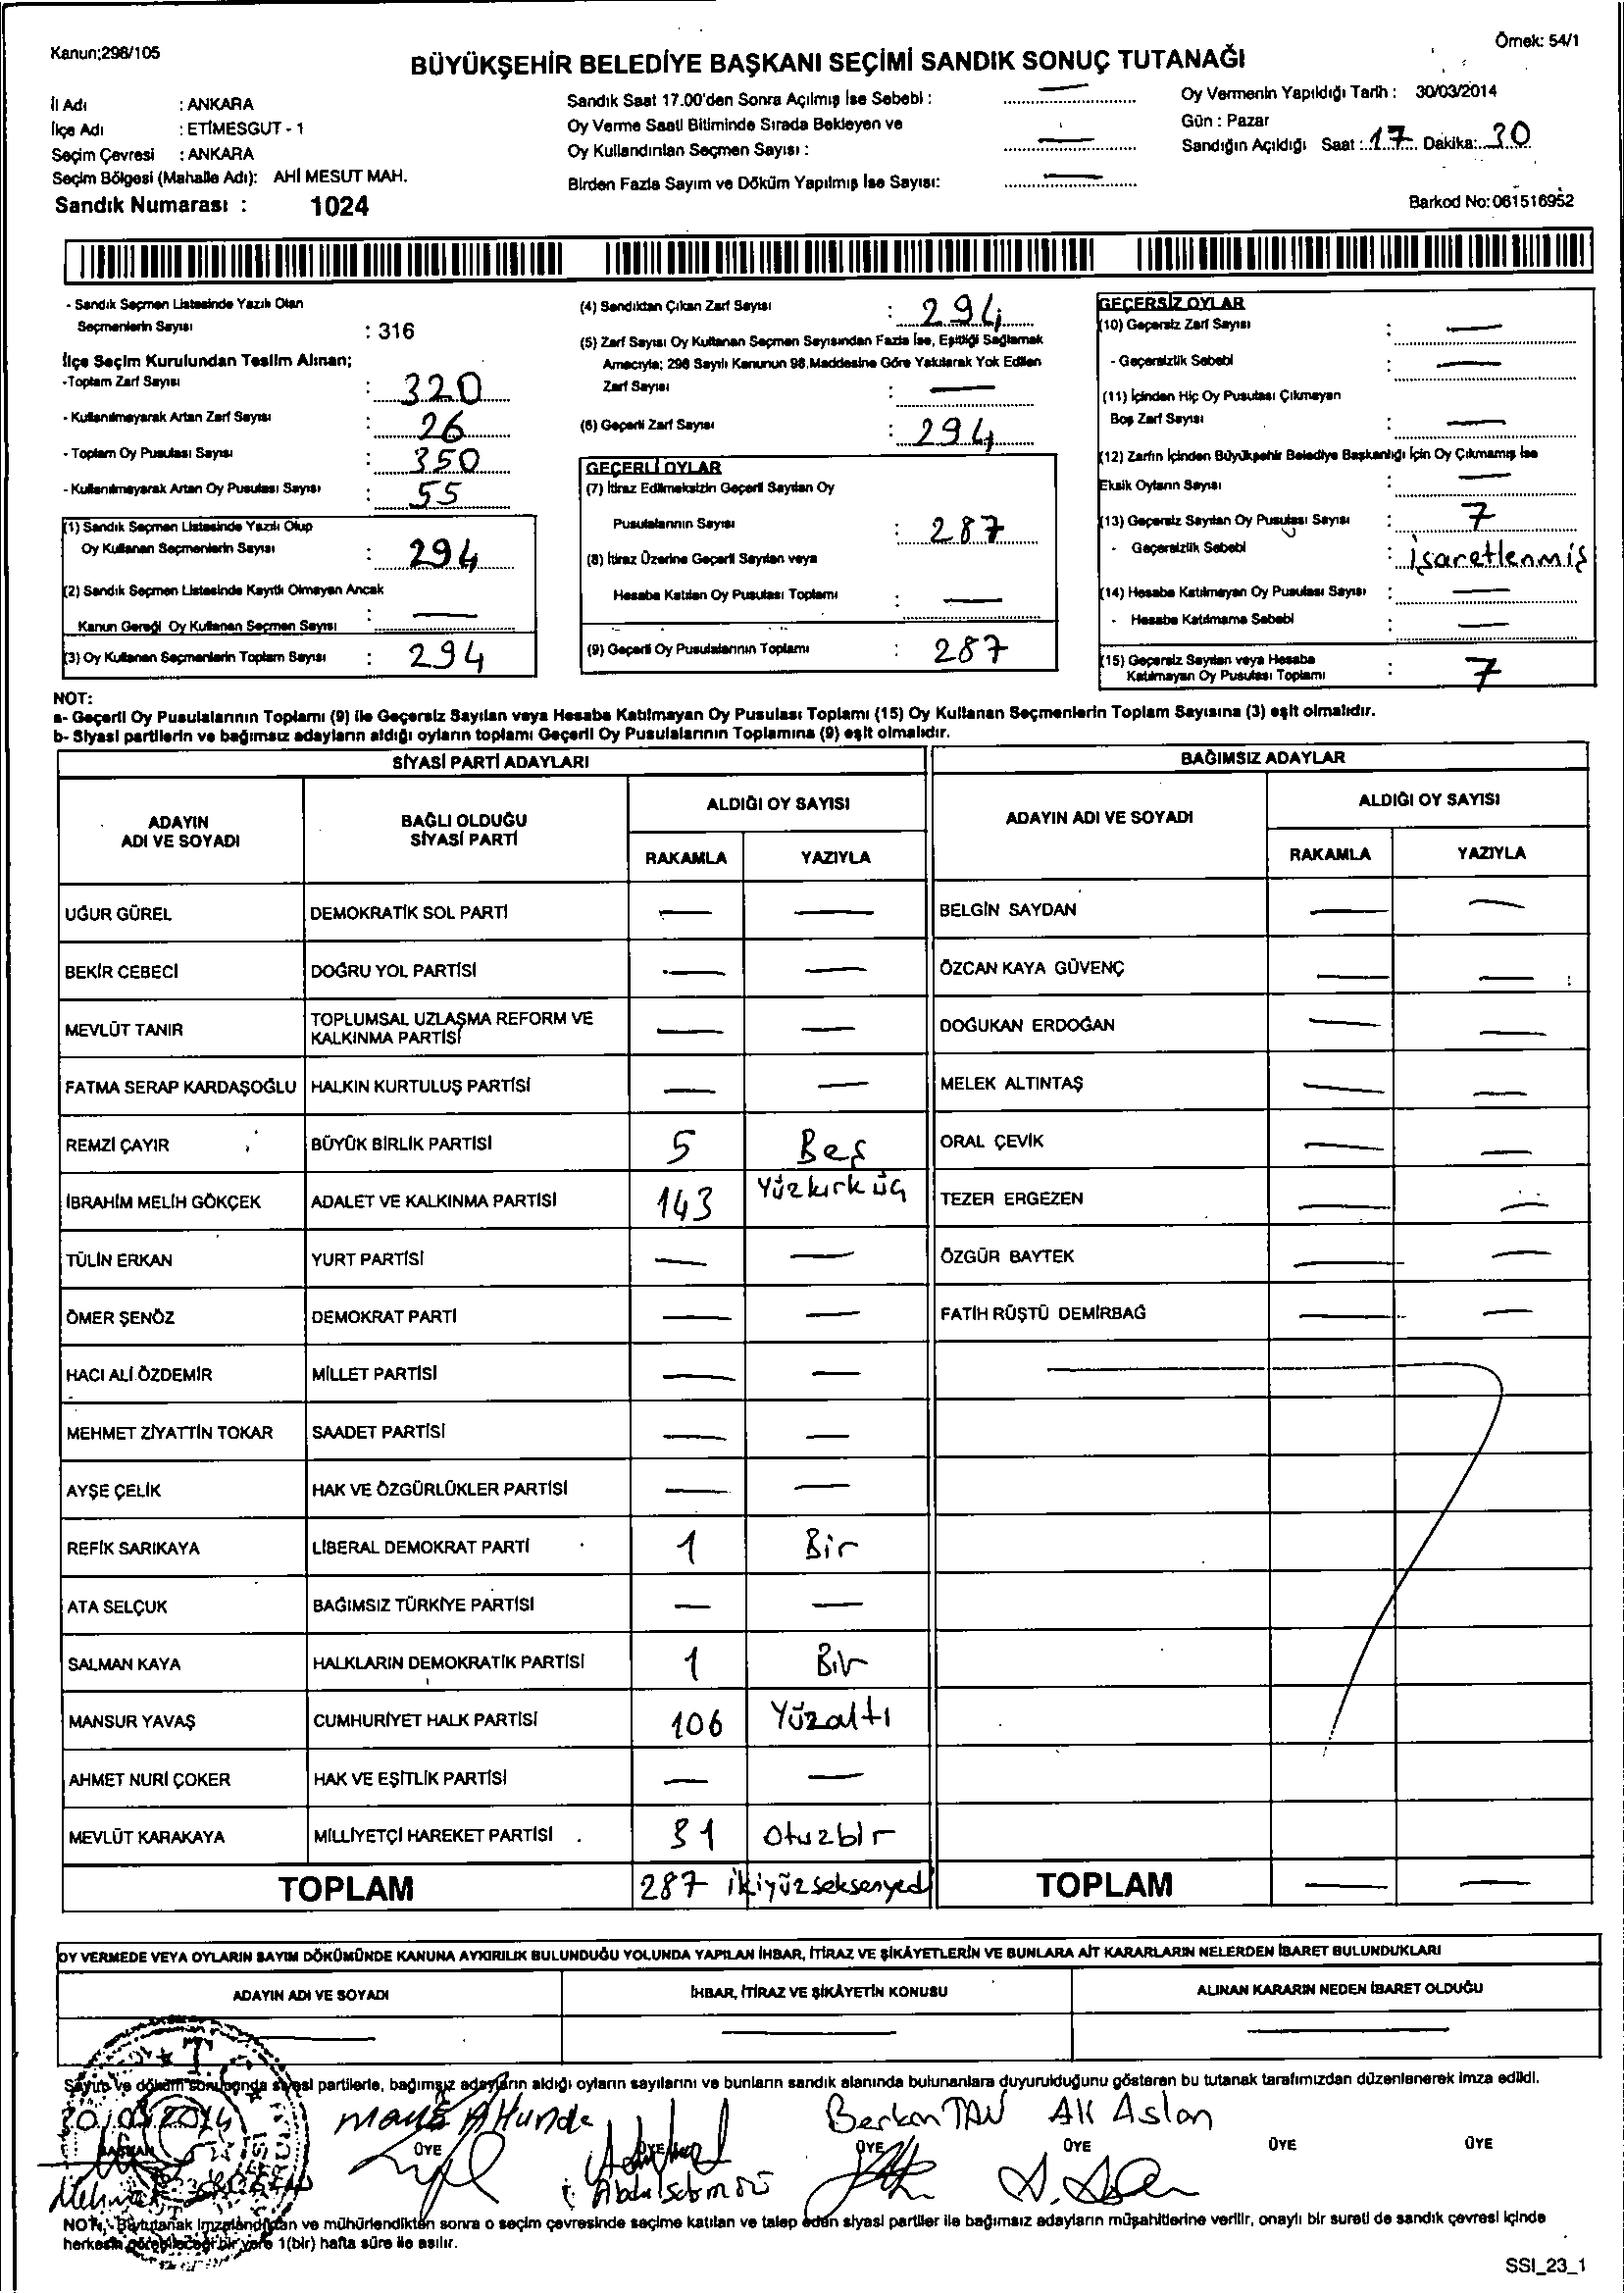 Kanun;298/105
Örnek: 54/1
BÜYÜKŞEHİR BELEDİYE BAŞKANI SEÇİMİ SANDIK SONUÇ TUTANAĞI
İl Adı : ANKARA
İlçe Adı : ETİMESGUT - 1
Seçim Çevresi : ANKARA
Seçim Bölgesi (Mahalle Adı): AHİ MESUT MAH.
Sandık Numarası : 1024
Sandık Saat 17.00'den Sonra Açılmış İse Sebebi : —
Oy Verme Saati Bitiminde Sırada Bekleyen ve
Oy Kullandırılan Seçmen Sayısı : —
Birden Fazla Sayım ve Döküm Yapılmış İse Sayısı: —
Oy Vermenin Yapıldığı Tarih : 30/03/2014
Gün : Pazar
Sandığın Açıldığı Saat : 17 Dakika: 30
Barkod No: 061516952
- Sandık Seçmen Listesinde Yazılı Olan
Seçmenlerin Sayısı : 316
İlçe Seçim Kurulundan Teslim Alınan;
-Toplam Zarf Sayısı : 320
- Kullanılmayarak Artan Zarf Sayısı : 26
- Toplam Oy Pusulası Sayısı : 350
- Kullanılmayarak Artan Oy Pusulası Sayısı : 55
(1) Sandık Seçmen Listesinde Yazılı Olup
Oy Kullanan Seçmenlerin Sayısı : 294
(2) Sandık Seçmen Listesinde Kayıtlı Olmayan Ancak
Kanun Gereği Oy Kullanan Seçmen Sayısı : —
(3) Oy Kullanan Seçmenlerin Toplam Sayısı : 294
(4) Sandıktan Çıkan Zarf Sayısı : 294
(5) Zarf Sayısı Oy Kullanan Seçmen Sayısından Fazla İse, Eşitliği Sağlamak
Amacıyla; 298 Sayılı Kanunun 98.Maddesine Göre Yakılarak Yok Edilen
Zarf Sayısı : —
(6) Geçerli Zarf Sayısı : 294
GEÇERLİ OYLAR
(7) İtiraz Edilmeksizin Geçerli Sayılan Oy
Pusulalarının Sayısı : 287
(8) İtiraz Üzerine Geçerli Sayılan veya
Hesaba Katılan Oy Pusulası Toplamı : —
(9) Geçerli Oy Pusulalarının Toplamı : 287
GEÇERSİZ OYLAR
(10) Geçersiz Zarf Sayısı : —
- Geçersizlik Sebebi : —
(11) İçinden Hiç Oy Pusulası Çıkmayan
Boş Zarf Sayısı : —
(12) Zarfın İçinden Büyükşehir Belediye Başkanlığı İçin Oy Çıkmamış İse
Eksik Oyların Sayısı : —
(13) Geçersiz Sayılan Oy Pusulası Sayısı : 7
- Geçersizlik Sebebi : işaretlenmiş
(14) Hesaba Katılmayan Oy Pusulası Sayısı : —
- Hesaba Katılmama Sebebi : —
(15) Geçersiz Sayılan veya Hesaba
Katılmayan Oy Pusulası Toplamı : 7
NOT:
a- Geçerli Oy Pusulalarının Toplamı (9) ile Geçersiz Sayılan veya Hesaba Katılmayan Oy Pusulası Toplamı (15) Oy Kullanan Seçmenlerin Toplam Sayısına (3) eşit olmalıdır.
b- Siyasi partilerin ve bağımsız adayların aldığı oyların toplamı Geçerli Oy Pusulalarının Toplamına (9) eşit olmalıdır.
SİYASİ PARTİ ADAYLARI
ADAYIN ADI VE SOYADI
BAĞLI OLDUĞU SİYASİ PARTİ
ALDIĞI OY SAYISI
RAKAMLA YAZIYLA
UĞUR GÜREL DEMOKRATİK SOL PARTİ — —
BEKİR CEBECİ DOĞRU YOL PARTİSİ — —
MEVLÜT TANIR TOPLUMSAL UZLAŞMA REFORM VE KALKINMA PARTİSİ — —
FATMA SERAP KARDAŞOĞLU HALKIN KURTULUŞ PARTİSİ — —
REMZİ ÇAYIR BÜYÜK BİRLİK PARTİSİ 5 Beş
İBRAHİM MELİH GÖKÇEK ADALET VE KALKINMA PARTİSİ 143 Yüzkırküç
TÜLİN ERKAN YURT PARTİSİ — —
ÖMER ŞENÖZ DEMOKRAT PARTİ — —
HACI ALİ ÖZDEMİR MİLLET PARTİSİ — —
MEHMET ZİYATTİN TOKAR SAADET PARTİSİ — —
AYŞE ÇELİK HAK VE ÖZGÜRLÜKLER PARTİSİ — —
REFİK SARIKAYA LİBERAL DEMOKRAT PARTİ 1 Bir
ATA SELÇUK BAĞIMSIZ TÜRKİYE PARTİSİ — —
SALMAN KAYA HALKLARIN DEMOKRATİK PARTİSİ 1 Bir
MANSUR YAVAŞ CUMHURİYET HALK PARTİSİ 106 Yüzaltı
AHMET NURİ ÇOKER HAK VE EŞİTLİK PARTİSİ — —
MEVLÜT KARAKAYA MİLLİYETÇİ HAREKET PARTİSİ 31 Otuzbir
TOPLAM 287 ikiyüzseksenyedi
BAĞIMSIZ ADAYLAR
ADAYIN ADI VE SOYADI
ALDIĞI OY SAYISI
RAKAMLA YAZIYLA
BELGİN SAYDAN — —
ÖZCAN KAYA GÜVENÇ — —
DOĞUKAN ERDOĞAN — —
MELEK ALTINTAŞ — —
ORAL ÇEVİK — —
TEZER ERGEZEN — —
ÖZGÜR BAYTEK — —
FATİH RÜŞTÜ DEMİRBAĞ — —
TOPLAM — —
OY VERMEDE VEYA OYLARIN SAYIM DÖKÜMÜNDE KANUNA AYKIRILIK BULUNDUĞU YOLUNDA YAPILAN İHBAR, İTİRAZ VE ŞİKÂYETLERİN VE BUNLARA AİT KARARLARIN NELERDEN İBARET BULUNDUKLARI
ADAYIN ADI VE SOYADI
İHBAR, İTİRAZ VE ŞİKÂYETİN KONUSU
ALINAN KARARIN NEDEN İBARET OLDUĞU
— — —
Sayım ve döküm sonucunda siyasi partilerle, bağımsız adayların aldığı oyların sayılarını ve bunların sandık alanında bulunanlara duyurulduğunu gösteren bu tutanak tarafımızdan düzenlenerek imza edildi.
30/03/2014
Berkan TAV Ali Aslan
BAŞKAN ÜYE ÜYE ÜYE ÜYE ÜYE ÜYE
Mehmet
NOT: Bu tutanak imzalandıktan ve mühürlendikten sonra o seçim çevresinde seçime katılan ve talep eden siyasi partiler ile bağımsız adayların müşahitlerine verilir, onaylı bir sureti de sandık çevresi içinde
herkesin görebileceği bir yere 1(bir) hafta süre ile asılır.
SSI_23_1